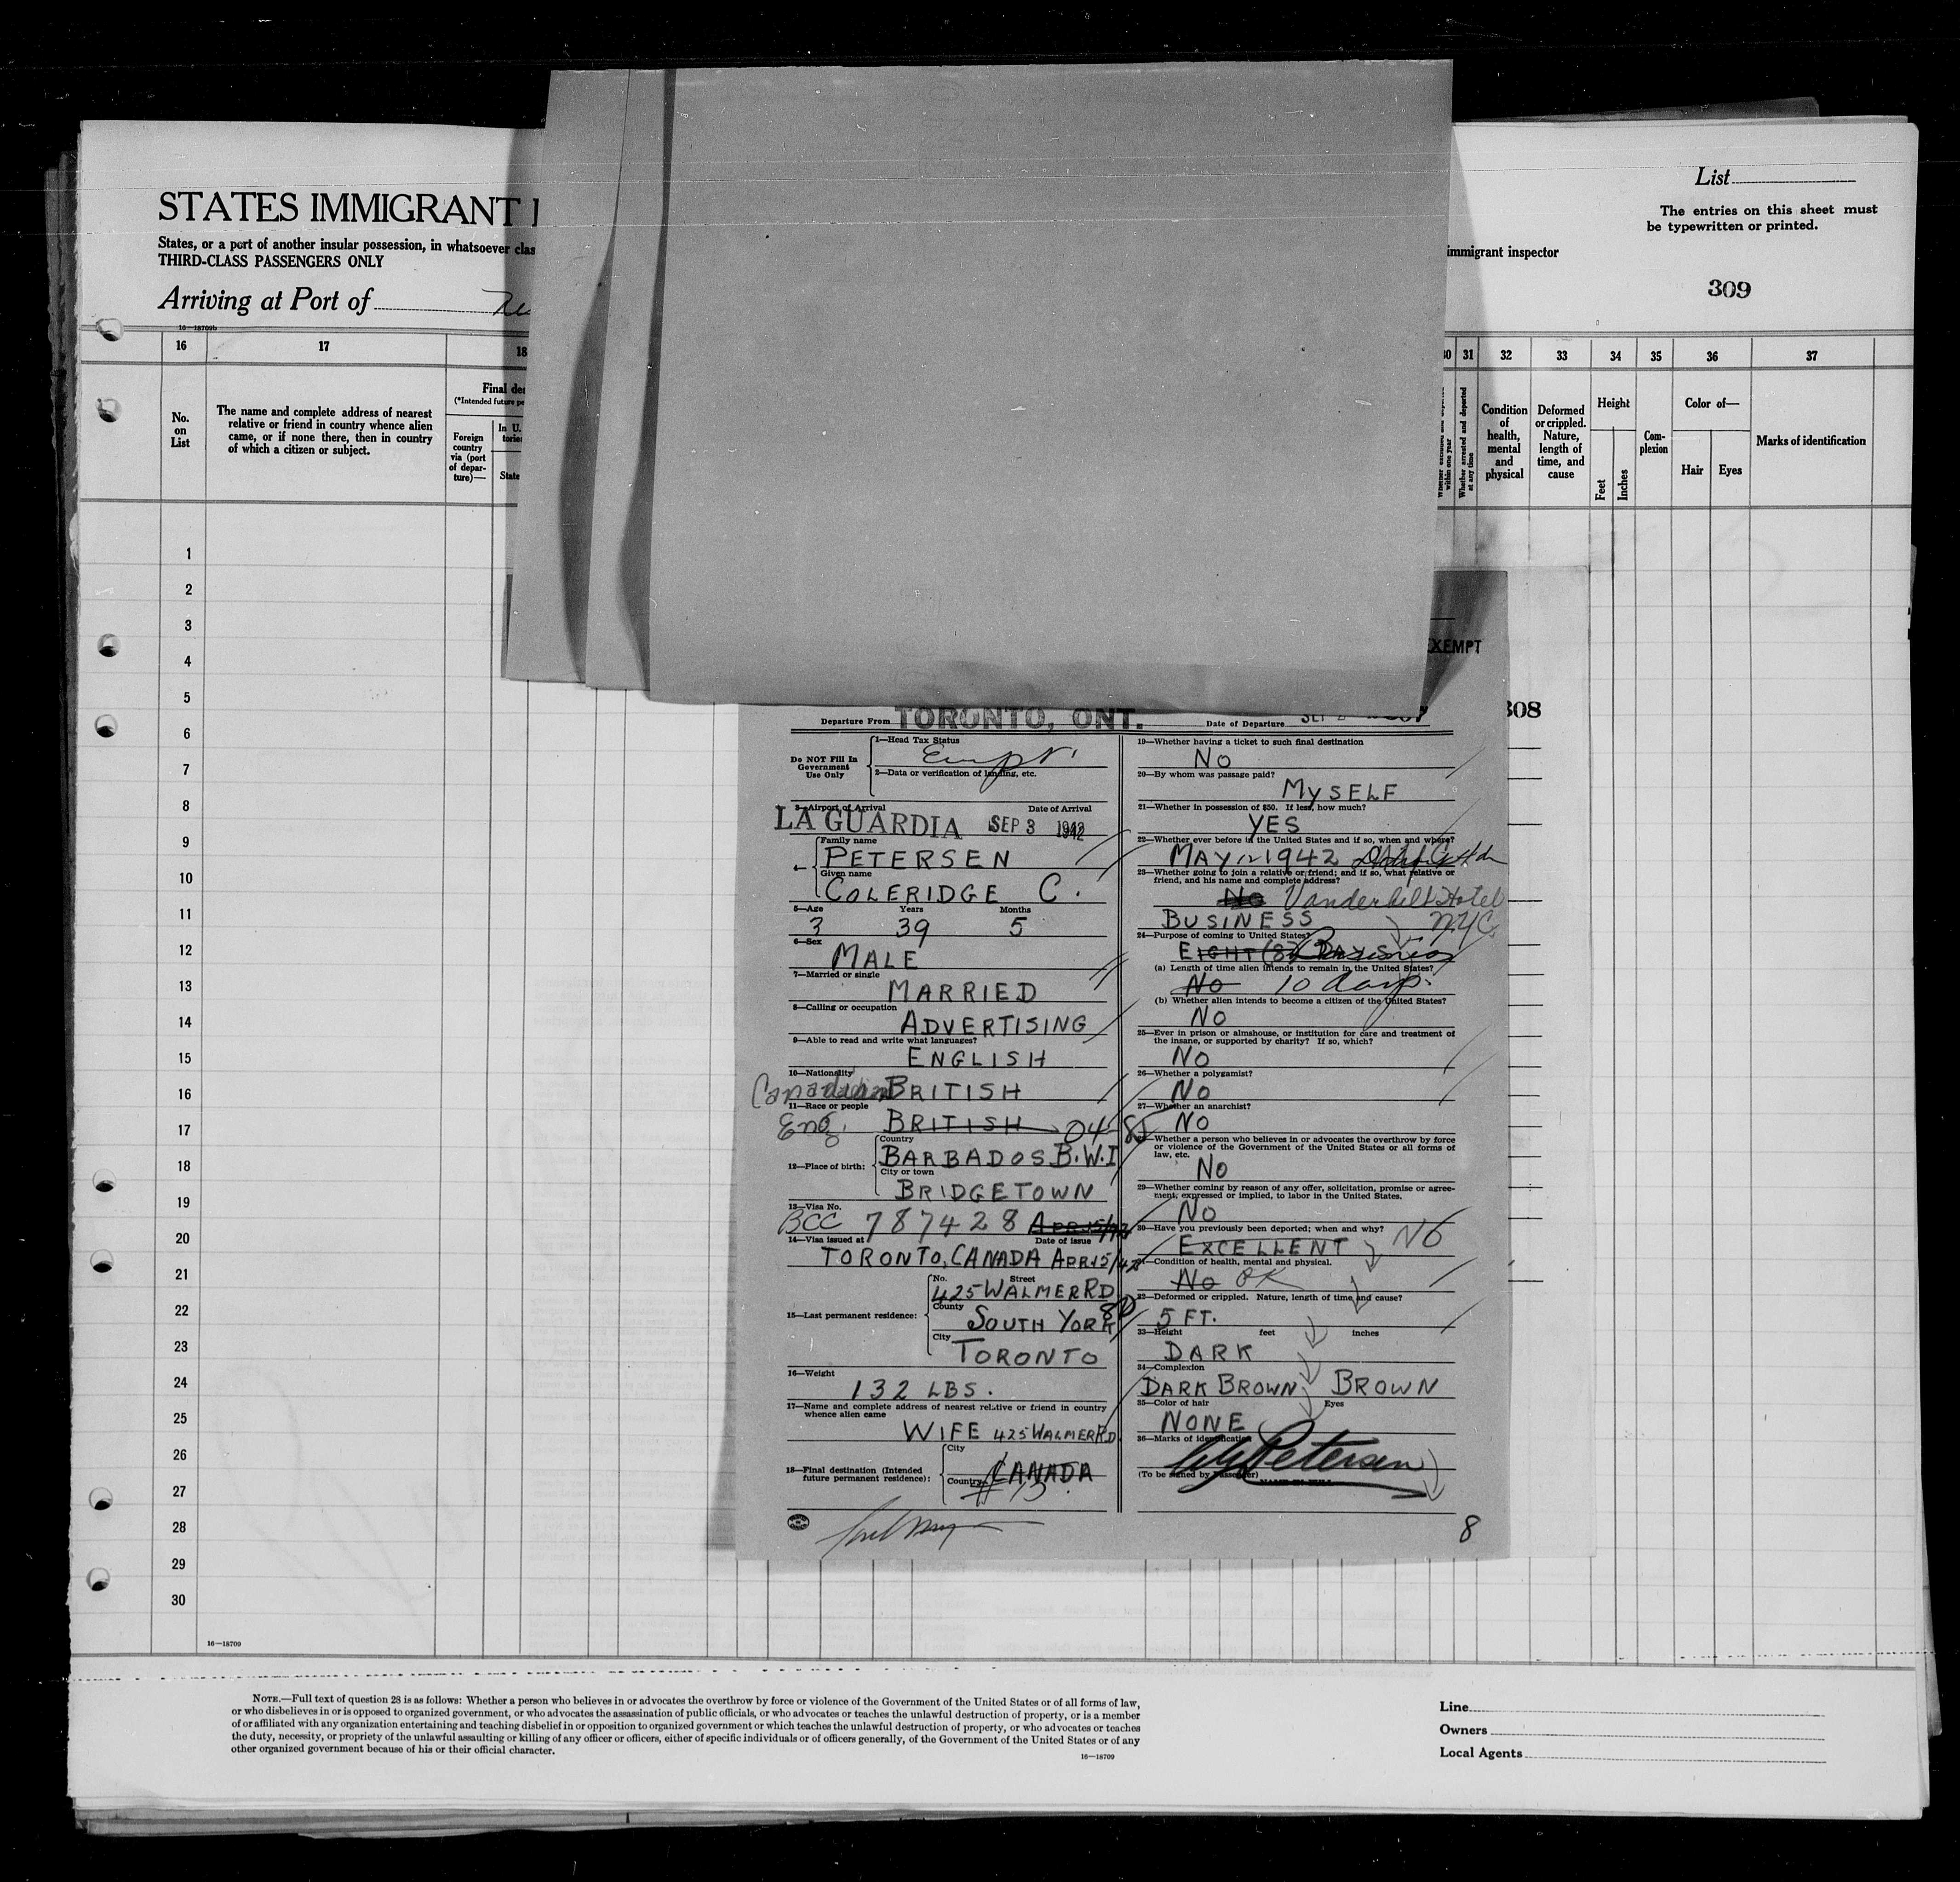 STATES IMMIGRANT
States, or a port of another insular possession, in whatsoever clas
THIRD-CLASS PASSENGERS ONLY
Arriving at Port of
List
The entries on this sheet must
be typewritten or printed.
immigrant inspector
309
16—18709b
16 17 18 30 31 32 33 34 35 36 37
No.
on
List
The name and complete address of nearest
relative or friend in country whence alien
came, or if none there, then in country
of which a citizen or subject.
Final des
(*Intended future pe
Foreign
country
via (port
of depar-
ture)—
In U.
tories
State
within one year
Whether arrested and deported
at any time
Condition
of
health,
mental
and
physical
Deformed
or crippled.
Nature,
length of
time, and
cause
Height
Feet
Inches
Com-
plexion
Color of—
Hair
Eyes
Marks of identification
1
2
3
4
5
6
7
8
9
10
11
12
13
14
15
16
17
18
19
20
21
22
23
24
25
26
27
28
29
30
16—18709
EXEMPT
308
Departure From TORONTO, ONT.
Date of Departure SEP 2
Do NOT Fill In
Government
Use Only
1—Head Tax Status
2—Data or verification of landing, etc.
3—Airport of Arrival Date of Arrival
LA GUARDIA SEP 3 1942
Family name
PETERSEN
Given name
COLERIDGE C.
5—Age Years Months
3 39 5
6—Sex
MALE
7—Married or single
MARRIED
8—Calling or occupation
ADVERTISING
9—Able to read and write what languages?
ENGLISH
10—Nationality
Canadian BRITISH
11—Race or people
Eng. BRITISH 04 85
12—Place of birth:
Country
BARBADOS B.W.I
City or town
BRIDGETOWN
13—Visa No.
BCC 787428 APR 15/42
14—Visa issued at Date of issue
TORONTO, CANADA APR 15/42
15—Last permanent residence:
No. Street
425 WALMER RD
County
SOUTH YORK
City
TORONTO
16—Weight
132 LBS.
17—Name and complete address of nearest relative or friend in country
whence alien came
WIFE 425 WALMER RD
18—Final destination (Intended
future permanent residence):
City
Country CANADA
19—Whether having a ticket to such final destination
NO
20—By whom was passage paid?
MYSELF
21—Whether in possession of $50. If less, how much?
YES
22—Whether ever before in the United States and if so, when and where?
MAY 1942
23—Whether going to join a relative or friend; and if so, what relative or
friend, and his name and complete address?
No Vanderbilt Hotel
BUSINESS N.Y.C.
24—Purpose of coming to United States?
EIGHT (8) DAYS Business
(a) Length of time alien intends to remain in the United States?
No 10 days.
(b) Whether alien intends to become a citizen of the United States?
NO
25—Ever in prison or almshouse, or institution for care and treatment of
the insane, or supported by charity? If so, which?
NO
26—Whether a polygamist?
NO
27—Whether an anarchist?
NO
Whether a person who believes in or advocates the overthrow by force
or violence of the Government of the United States or all forms of
law, etc.
NO
29—Whether coming by reason of any offer, solicitation, promise or agree-
ment, expressed or implied, to labor in the United States.
NO
30—Have you previously been deported; when and why? NO
EXCELLENT
31—Condition of health, mental and physical.
No OK
32—Deformed or crippled. Nature, length of time, and cause?
5 FT.
33—Height feet inches
DARK
34—Complexion
DARK BROWN BROWN
35—Color of hair Eyes
NONE
36—Marks of identification
Petersen
(To be signed by Passenger)
8
NOTE.—Full text of question 28 is as follows: Whether a person who believes in or advocates the overthrow by force or violence of the Government of the United States or of all forms of law,
or who disbelieves in or is opposed to organized government, or who advocates the assassination of public officials, or who advocates or teaches the unlawful destruction of property, or is a member
of or affiliated with any organization entertaining and teaching disbelief in or opposition to organized government or which teaches the unlawful destruction of property, or who advocates or teaches
the duty, necessity, or propriety of the unlawful assaulting or killing of any officer or officers, either of specific individuals or of officers generally, of the Government of the United States or of any
other organized government because of his or their official character.
16—18709
Line
Owners
Local Agents